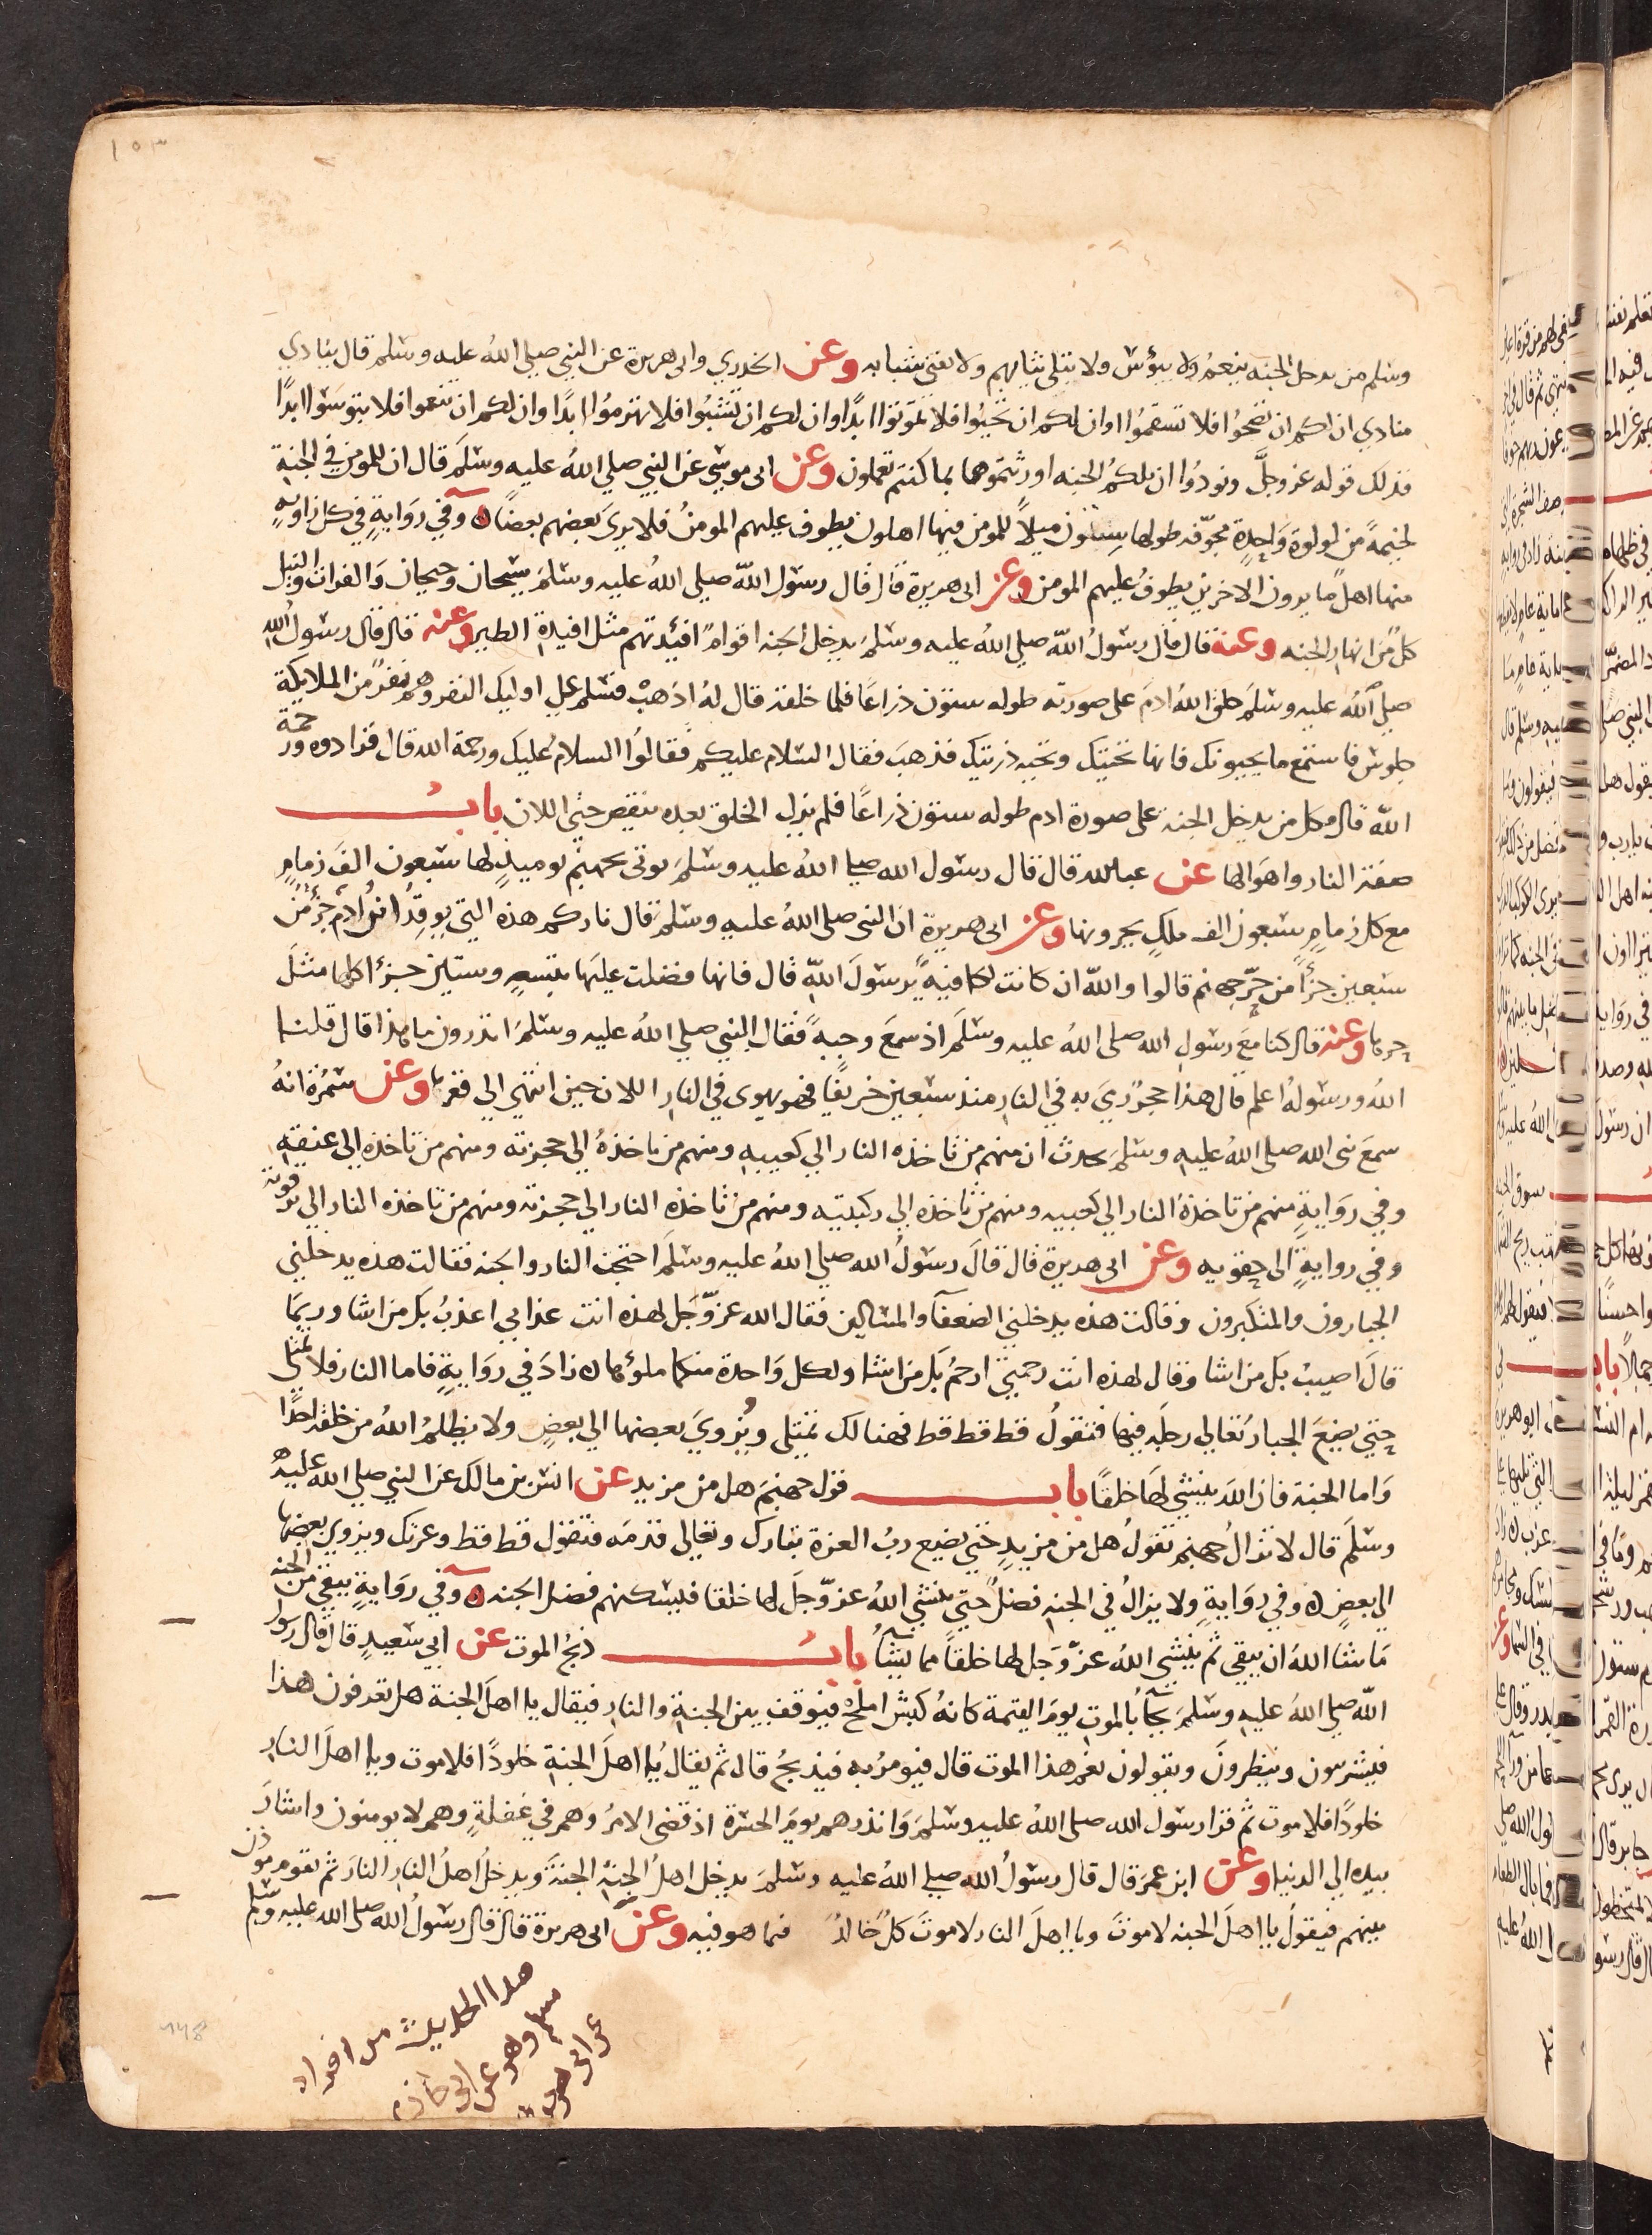 ١٥٣
وسلم من يدخل الجنه ينعم ولا يبؤس ولا تبلى ثيابهم ولا يفنى شبابه وعن الخدري وابى هريرة عن النبي صلي الله عليه وسلم قال ينادي
منادي ان لكم ان تصحوا فلا تسقموا وان لكم ان تحيوا فلا تموتوا ابدًا وان لكم ان تشبوا فلا تهرموا ابدًا وان لكم ان تنعموا فلا تبوسوا ابدًا
فذلك قوله عز وجل ونودوا ان تلكم الجنه اورثتموها بما كنتم تعملون وعن ابى موسي عن النبي صلي الله عليه وسلم قال ان للمومن في الجنة
لخيمةً من لولوة واحدة مجوّفه طولها ستون ميلاً للمومن فيها اهلون يطوف عليهم المومن فلا يرى بعضهم بعضًا ه وفي رواية في كل زاوية
منها اهل ما يرون الاخرين يطوف عليهم المومن وعن ابى هريرة قال قال رسول الله صلي الله عليه وسلم سيحان وجيحان والفرات والنيل
كل من انهار الجنه وعنه قال قال رسول الله صلي الله عليه وسلم يدخل الجنه اقوام افئدتهم مثل افيدة الطير وعنه قال قال رسول الله
صلي الله عليه وسلم خلق الله ادم على صورته طوله ستون ذراعًا فلما خلقه قال له اذهب فسلم على اوليك النفر وهم نفر من الملايكة
جلوس فاستمع ما يحيونك فانها تحيتك وتحيه ذريتك فذهب فقال السلام عليكم فقالوا السلام عليك ورحمة الله قال فزادوه ورحمة
الله قال وكل من يدخل الجنة على صورة ادم طوله ستون ذراعًا فلم يزل الخلق بعده ينقص حتى اللان باب
صفة النار واهوالها عن عبد الله قال قال رسول الله صلي الله عليه وسلم يوتى بجهنم يوميذٍ لها سبعون الف زمام
مع كل زمام سبعون الف ملك يجرونها وعن ابى هريرة ان النبى صلى الله عليه وسلم قال ناركم هذه التي يوقد ابن ادم جزؤ من
سبعين جزأ من حرّ جهنم قالوا والله ان كانت لكافية يرسول الله قال فانها فضلت عليها بتسعه وستين جزءا كلها مثل
حرها وعنه قال كنا مع رسول الله صلى الله عليه وسلم اذ سمع وجبة فقال النبي صلي الله عليه وسلم اتدرون ما هذا قال قلنا
الله ورسوله اعلم قال هذا حجر رمي به في النار منذ سبعين خريفًا فهو يهوى في النار اللان حين انتهي الي قعرها وعن سمرة انه
سمع نبى الله صلى الله عليه وسلم يحدث ان منهم من تاخذه النار الي كعبيه ومنهم من تاخذه الي حجزته ومنهم من تاخذه الي عنقه
وفي رواية منهم من تاخذه النار الي كعبيه ومنهم من تاخذه الي ركبتيه ومنهم من تاخذه النار الي حجزته ومنهم من تاخذه النار الي ترقوته
وفي رواية الى حقويه وعن ابى هريرة قال قال رسول الله صلي الله عليه وسلم احتجت النار والجنه فقالت هذه يدخلني
الجبارون والمتكبرون وقالت هذه يدخلني الضعفآ والمساكين فقال الله عزّ وجل لهذه انت عذابي اعذب بك من اشا وربما
قال اصيب بك من اشا وقال لهذه انت رحمتي ارحم بك من اشا ولكل واحدة منكما ملؤها ه زاد في رواية فاما النار فلا تمتلي
حتي يضع الجبار تعالي رجله فيها فتقول قط قط قط فهنالك تمتلى ويزوي بعضها الي بعض ولا يظلم الله من خلقه احدًا
واما الجنة فان الله ينشي لها خلقًا باب قول جهنم هل من مزيد عن انس بن مالك عن النبي صلي الله عليه
وسلم قال لا تزال جهنم تقول هل من مزيد حتي يضع رب العزة تبارك وتعالي قدمه فتقول قط قط وعزتك ويزوي بعضها
الي بعض ه وفي رواية ولا يزال في الجنه فضل حتي ينشي الله عزّ وجل لها خلقا فيسكنهم فضل الجنه ه وفي رواية يبقي من الجنه
ما شا الله ان يبقي ثم ينشي الله عزّ وجل لها خلقاً مما يشآ باب ذبح الموت عن ابي سعيد قال قال رسول
الله صلي الله عليه وسلم يجآ بالموت يوم القيمة كانه كبش املح فيوقف بين الجنة والنار فيقال يا اهل الجنة هل تعرفون هذا
فيشربيون وينظرون ويقولون نعم هذا الموت قال فيومر به فيذبح قال ثم يقال يا اهل الجنة خلودًا فلا موت ويا اهل النار
خلودًا فلا موت ثم قرا رسول الله صلى الله عليه وسلم وانذرهم يوم الحسرة اذ قضى الامر وهم في غفلةٍ وهم لا يومنون واشار
بيده الي الدنيا وعن ابن عمر قال قال رسول الله صلي الله عليه وسلم يدخل اهل الجنة الجنة ويدخل اهل النار النار ثم يقوم موذن
بينهم فيقول يا اهل الجنه لا موت ويا اهل النار لا موت كل خالد فيما هو فيه وعن ابى هريرة قال قال رسول الله صلى الله عليه وسلم
هذا الحديث من افراد
مسلم وهو عن ابي حازم
عن ابى هريرة